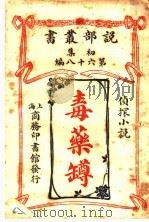 說部叢書
初集
第六十八編
偵探小說
毒藥罇
上海
商務印書館發行